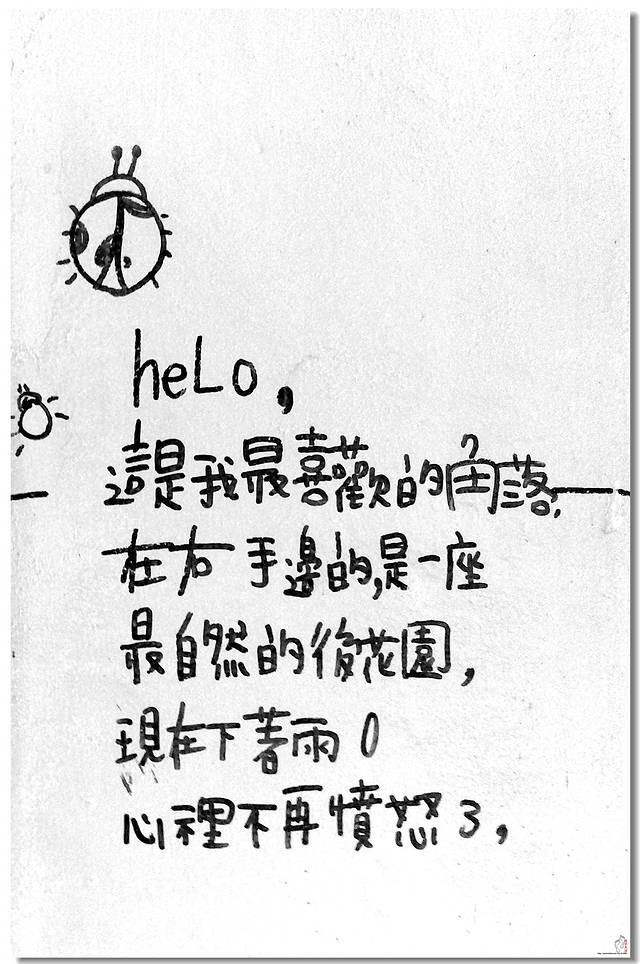 heLo,
這是我最喜歡的角落.
在右手邊的,是一座
最自然的後花園,
現在下著雨()
心裡不再憤怒3,